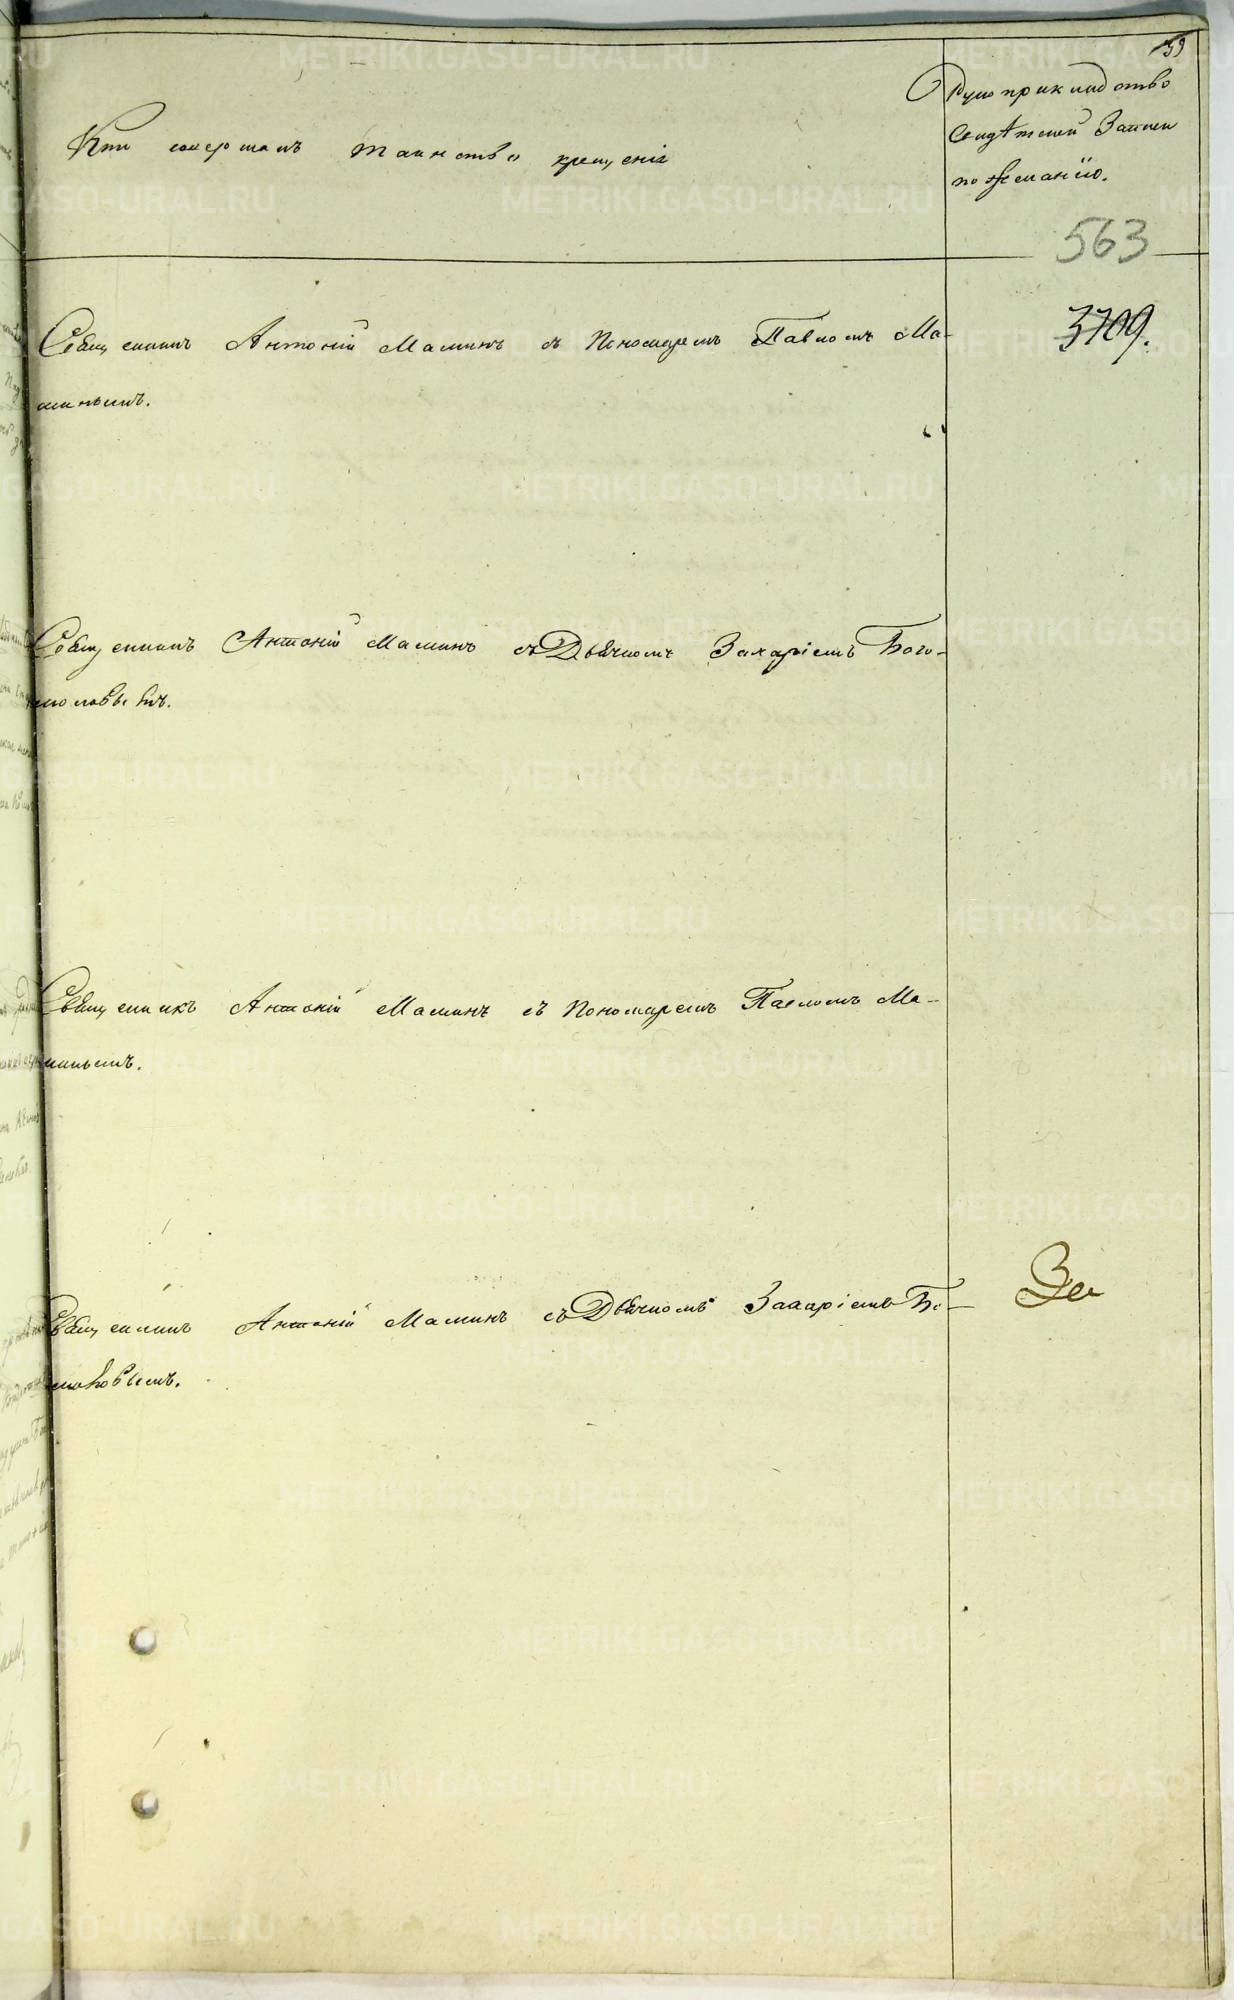 39
Кто совершалъ таинство крещенія
Рукоприкладство
свидѣтелей записи
по желанію.
563
3709.
Священникъ Антоній Маминъ съ Пономаремъ Павломъ Ма-
минымъ.
Священникъ Антоній Маминъ съ Дьячкомъ Захаріемъ Бого-
моловымъ.
Священникъ Антоній Маминъ съ Пономаремъ Павломъ Ма-
минымъ.
Священникъ Антоній Маминъ съ Дьячкомъ Захаріемъ Бо-
моловымъ.
За
METRIKI.GASO-URAL.RU